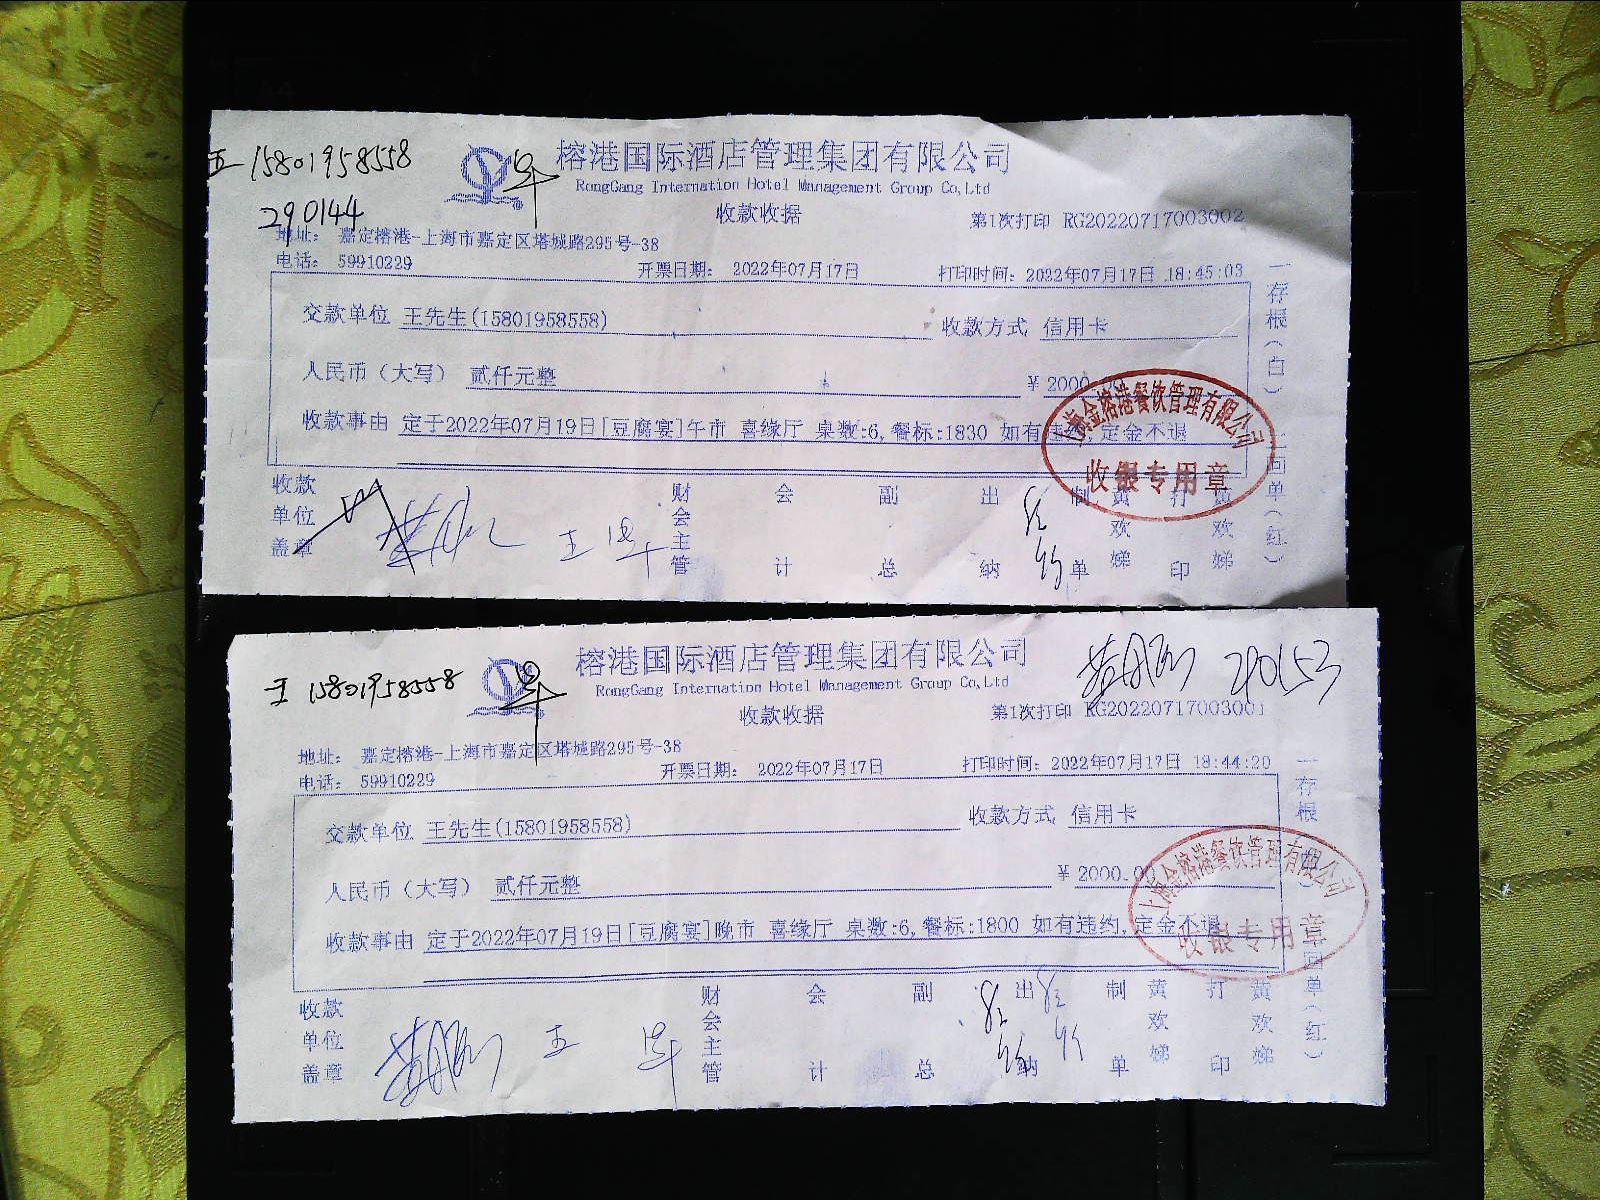 王 15801958558
290144
榕港国际酒店管理集团有限公司
RongGang Internation Hotel Management Group Co,Ltd
收款收据
第1次打印 RG20220717003002
地址： 嘉定榕港-上海市嘉定区塔城路295号-38
电话： 59910229
开票日期： 2022年07月17日
打印时间：2022年07月17日 18:45:03
交款单位 王先生(15801958558)
收款方式 信用卡
人民币（大写） 贰仟元整
￥2000.00
收款事由 定于2022年07月19日[豆腐宴]午市 喜缘厅 桌数:6,餐标:1830 如有违约,定金不退
上海金榕港餐饮管理有限公司
收银专用章
一存根（白）
二回单（红）
收款单位盖章
财会主管
会计
副总
出纳
制单
黄欢娣
打印
黄欢娣
王
王 15801958558
290153
榕港国际酒店管理集团有限公司
RongGang Internation Hotel Management Group Co,Ltd
收款收据
第1次打印 RG20220717003001
地址： 嘉定榕港-上海市嘉定区塔城路295号-38
电话： 59910229
开票日期： 2022年07月17日
打印时间：2022年07月17日 18:44:20
交款单位 王先生(15801958558)
收款方式 信用卡
人民币（大写） 贰仟元整
￥2000.00
收款事由 定于2022年07月19日[豆腐宴]晚市 喜缘厅 桌数:6,餐标:1800 如有违约,定金不退
上海金榕港餐饮管理有限公司
收银专用章
一存根
回单（红）
收款单位盖章
王
财会主管
会计
副总
出纳
制单
黄欢娣
打印
黄欢娣